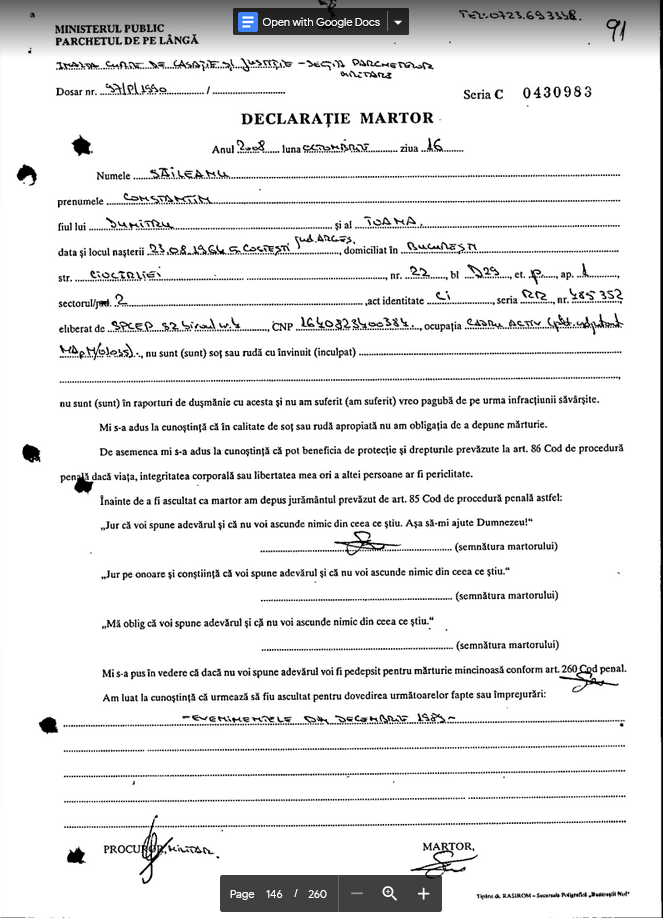 Open with Google Docs
TEL: 0723.693338.
91
MINISTERUL PUBLIC
PARCHETUL DE PE LÂNGĂ
INALTA CURTE DE CASAȚIE ȘI JUSTIȚIE - SECȚIA PARCHETELOR
MILITARE
Dosar nr. 97/P/1990 /
Seria C 0430983
DECLARAȚIE MARTOR
Anul 2008 luna OCTOMBRIE ziua 16
Numele SĂILEANU
prenumele CONSTANTIN
fiul lui DUMITRU și al IOANA.
jud. ARGEȘ,
data și locul nașterii 23.08.1964 COCIEȘTI, domiciliat în BUCUREȘTI
str. CIOCÂRLIEI, nr. 22, bl D29, et. P, ap. 1,
sectorul/jud. 2, act identitate CI, seria RR, nr. 485352
eliberat de SPCEP S2 biroul nr. 4, CNP, ocupația CADRU ACTIV
nu sunt (sunt) soț sau rudă cu învinuit (inculpat)
nu sunt (sunt) în raporturi de dușmănie cu acesta și nu am suferit (am suferit) vreo pagubă de pe urma infracțiunii săvârșite.
Mi s-a adus la cunoștință că în calitate de soț sau rudă apropiată nu am obligația de a depune mărturie.
De asemenea mi s-a adus la cunoștință că pot beneficia de protecție și drepturile prevăzute la art. 86 Cod de procedură
penală dacă viața, integritatea corporală sau libertatea mea ori a altei persoane ar fi periclitate.
Înainte de a fi ascultat ca martor am depus jurământul prevăzut de art. 85 Cod de procedură penală astfel:
„Jur că voi spune adevărul și că nu voi ascunde nimic din ceea ce știu. Așa să-mi ajute Dumnezeu!“
(semnătura martorului)
„Jur pe onoare și conștiință că voi spune adevărul și că nu voi ascunde nimic din ceea ce știu.“
(semnătura martorului)
„Mă oblig că voi spune adevărul și că nu voi ascunde nimic din ceea ce știu.“
(semnătura martorului)
Mi s-a pus în vedere că dacă nu voi spune adevărul voi fi pedepsit pentru mărturie mincinoasă conform art. 260 Cod penal.
Am luat la cunoștință că urmează să fiu ascultat pentru dovedirea următoarelor fapte sau împrejurări:
- EVENIMENTELE DIN DECEMBRIE 1989 -
PROCUROR, MILITAR.
MARTOR,
Page 146 / 260
Tipărit de RASIROM – Sucursala Poligrafică „Bucureștii Noi“